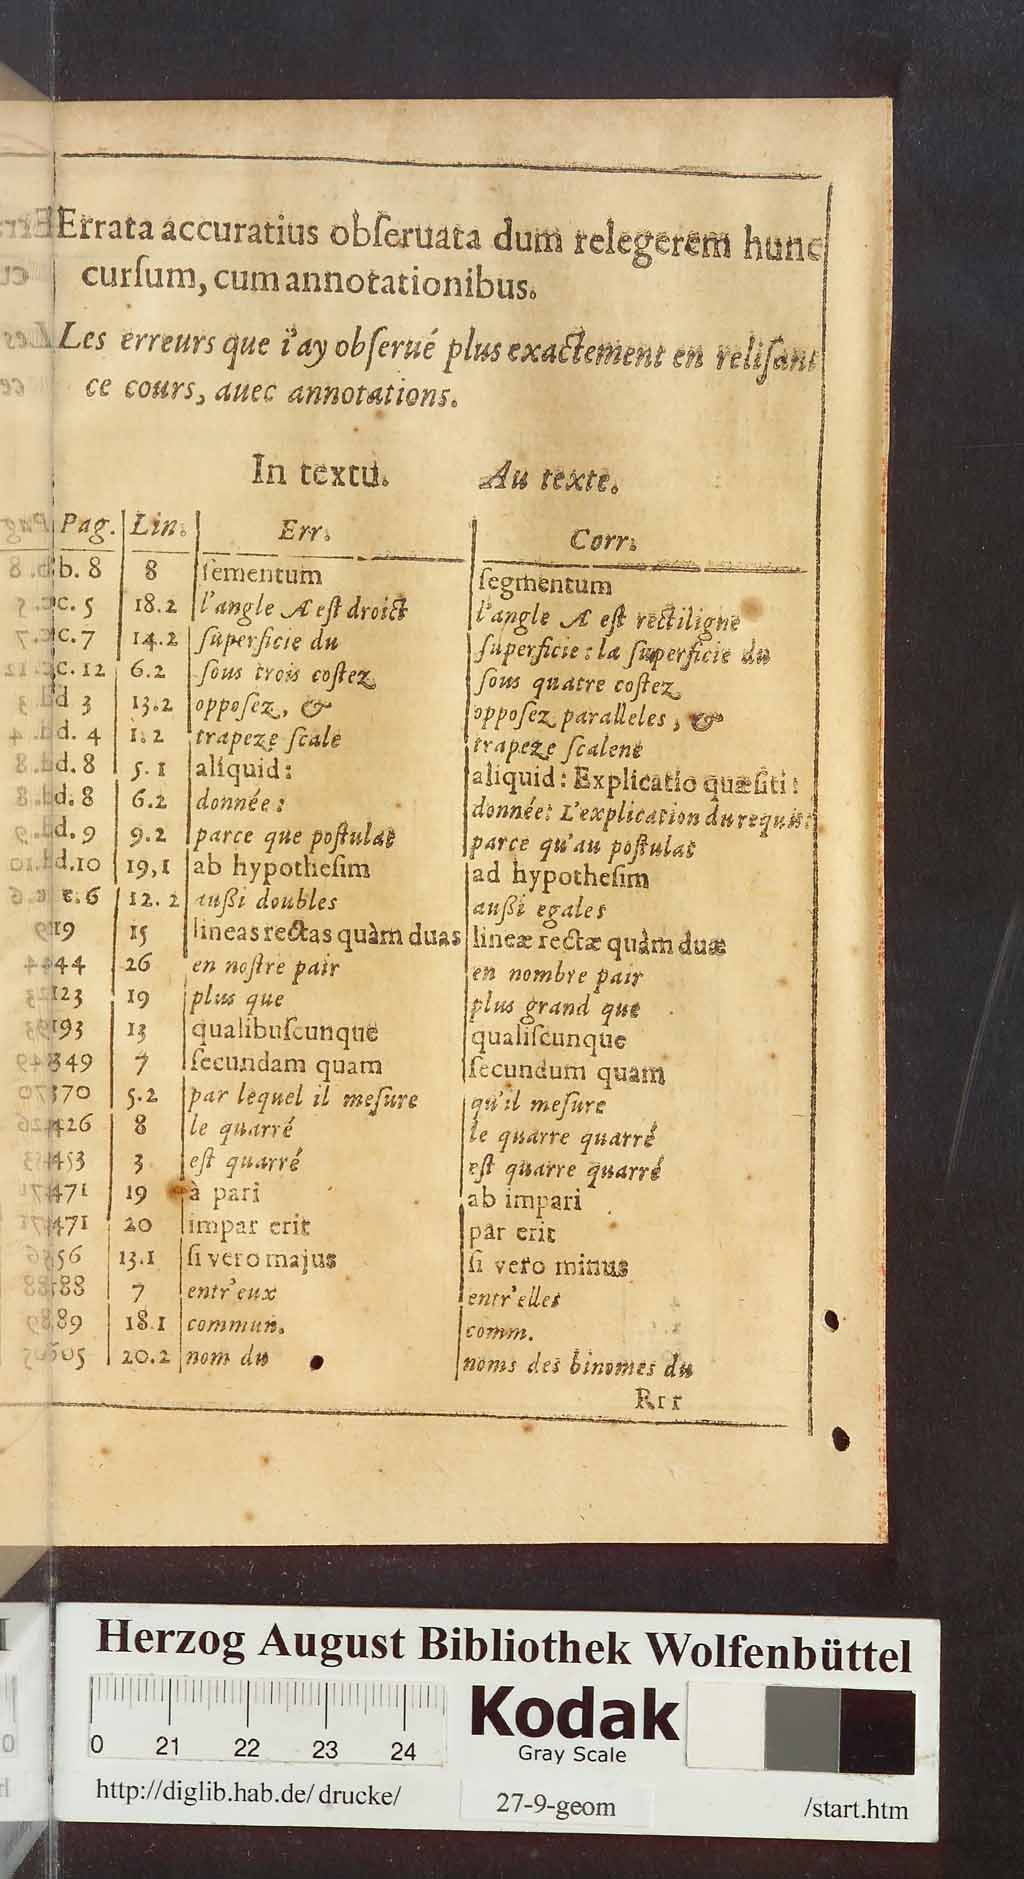 Errata accuratius obſeruata dum relegerem hunc
curſum, cum annotationibus.
Les erreurs que i'ay obſerué plus exactement en reliſant
ce cours, auec annotations.
In textu. Au texte.
Pag. Lin. Err. Corr.
b. 8 8 ſementum ſegmentum
c. 5 18.2 l'angle A eſt droict l'angle A eſt rectiligne
c. 7 14.2 ſuperficie du ſuperficie: la ſuperficie du
c. 12 6.2 ſous trois coſtez ſous quatre coſtez
d 3 13.2 oppoſez, & oppoſez paralleles, &
d. 4 1.2 trapeze ſcale trapeze ſcalene
d. 8 5.1 aliquid: aliquid: Explicatio quæſiti:
d. 8 6.2 donnée: donnée: L'explication du requis:
d. 9 9.2 parce que poſtulat parce qu'au poſtulat
d.10 19,1 ab hypotheſim ad hypotheſim
e. 6 12.2 außi doubles außi egales
19 15 lineas rectas quàm duas lineæ rectæ quàm duæ
44 26 en noſtre pair en nombre pair
123 19 plus que plus grand que
193 13 qualibuſcunque qualiſcunque
349 7 ſecundam quam ſecundum quam
370 5.2 par lequel il meſure qu'il meſure
426 8 le quarré le quarre quarré
453 3 eſt quarré eſt quarre quarré
471 19 à pari ab impari
471 20 impar erit par erit
56 13.1 ſi vero majus ſi vero minus
88 7 entr'eux entr'elles
89 18.1 commun. comm.
605 20.2 nom du noms des binomes du
Rrr
Herzog August Bibliothek Wolfenbüttel
0 21 22 23 24
Kodak
Gray Scale
http://diglib.hab.de/drucke/ 27-9-geom /start.htm